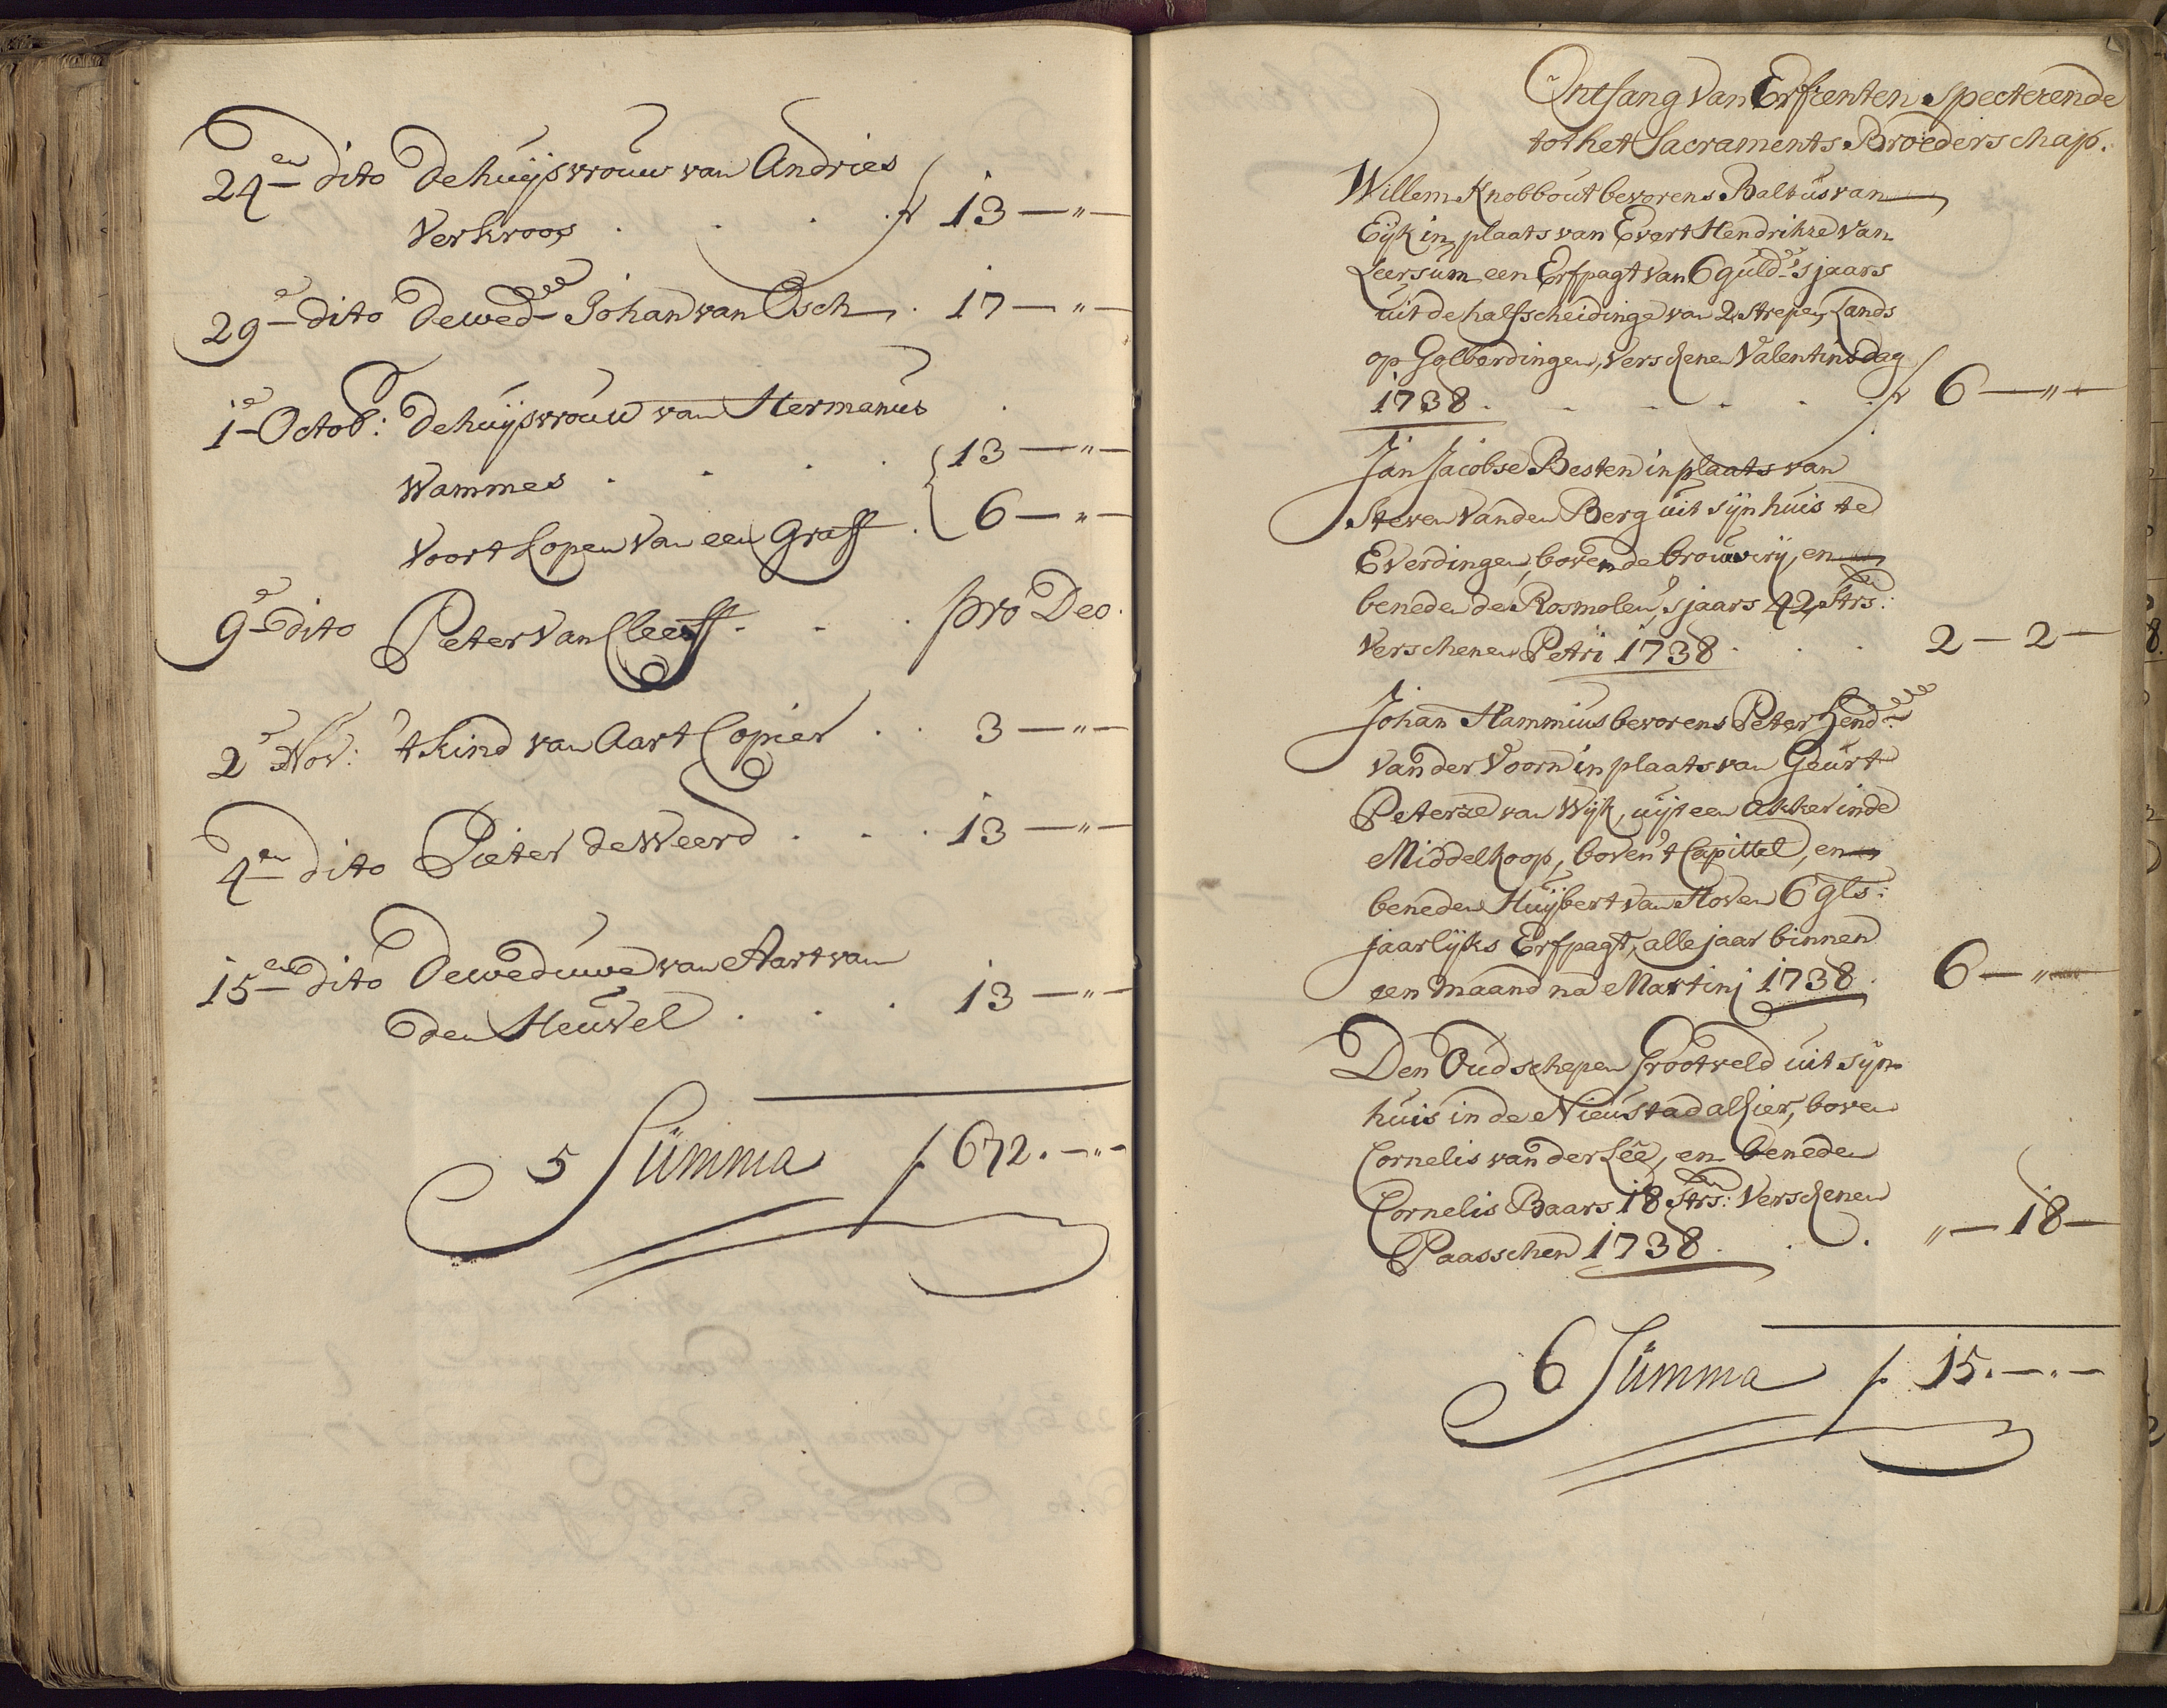 24en dito De huijsvrouw van Andries
Verkroos . . . f 13 — „ —
29e dito De wede Johan van Osch . 17 — „ —
1e Octob: De huijsvrouw van Hermanus
Wammes . . . . 13 — „ —
Voort Kopen van een Graff . 6 — „ —
9e dito Peter van Cleeff . . . pro Deo.
2e Nov: 't Kind van Aart Copier . . 3 — „ —
4en dito Pieter de Weerd . . . 13 — „ —
15en dito De weduwe van Aart van
den Heuvel . . . 13 — „ —
5 Summa f 672. — „ —
Ontfang van Erfrenten specterende
tot het Sacraments Broederschap.
Willem Knobbout bevorens Baltus van
Eijk in plaats van Evert Hendrikze van
Leersum een Erfpagt van 6 guldes sjaars
uit de halfscheidinge van 2 Strepen Lands
op Golberdingen, Verschenen Valentinsdag
1738 . . . . . . f 6 — „ —
Jan Jacobse Besten in plaats van
Steven Vanden Berg uit sijn huis te
Everdingen, boven de brouwerij, en
beneden de Rosmolen, sjaars 42 Strs:
Verschenen Petri 1738 . . . 2 — 2 —
Johan Hammius bevorens Peter Hend:
van der Voorn in plaats van Geurt
Peterze van Wijk, uijt een akker inde
Middelkoop, boven 't Capittel, en
beneden Huijbert van Hoven 6 gls:
jaarlijks Erfpagt, alle jaar binnen
een maand na Martini 1738 . 6 — „ —
Den Oud schepen Grootveld uit sijn
huis in de Nieustad alhier, boven
Cornelis van der Lee, en beneden
Cornelis Baars 18 Strs: Verschenen
Paasschen 1738 . . . „ — 18 —
6 Summa f 15. — . —